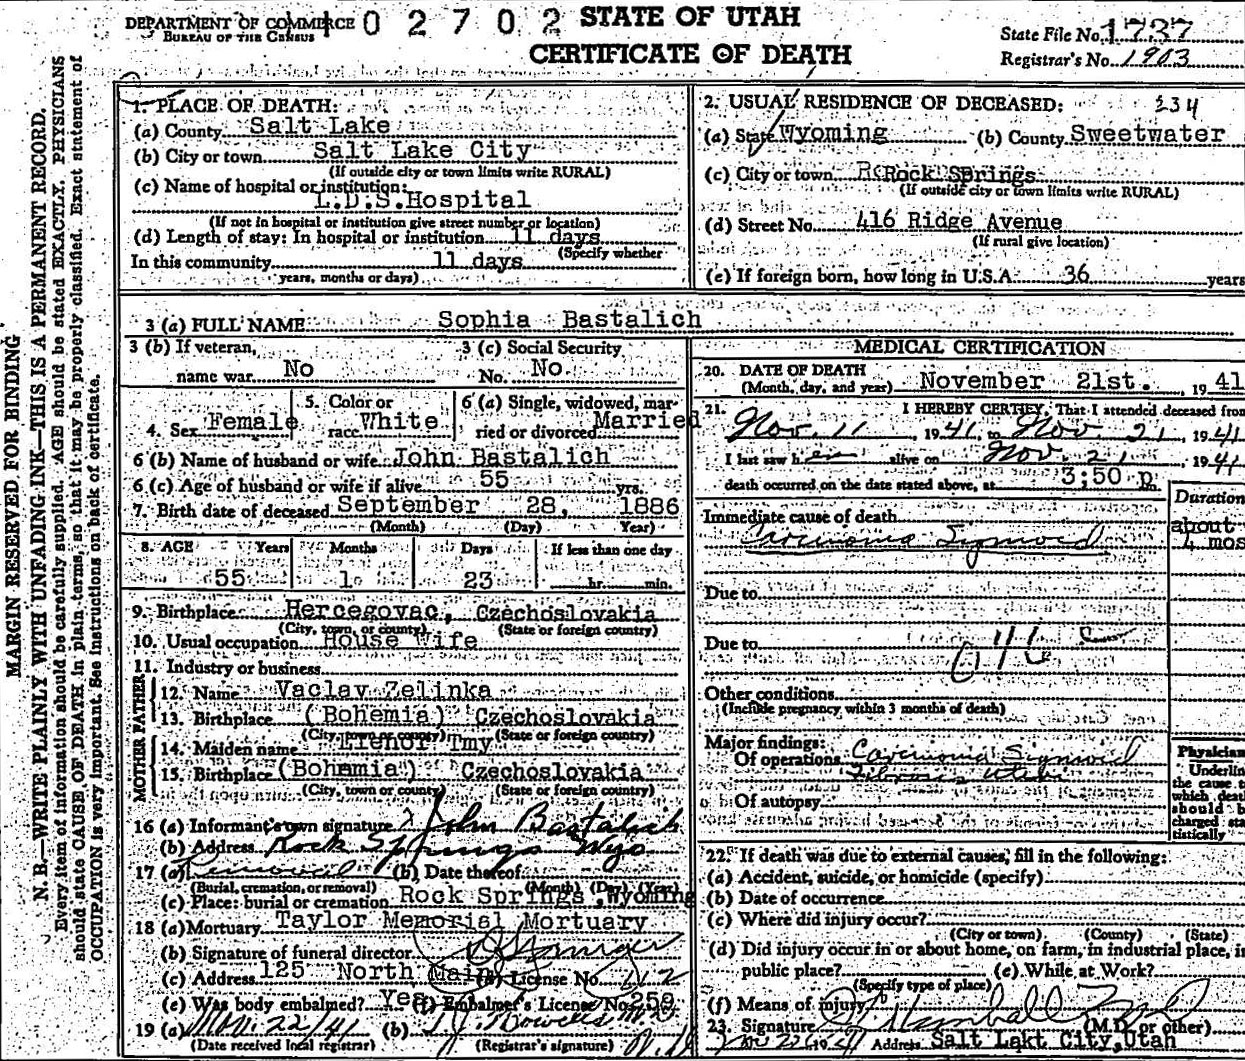 DEPARTMENT OF COMMERCE
BUREAU OF THE CENSUS
02702
STATE OF UTAH
CERTIFICATE OF DEATH
State File No. 1737
Registrar's No. 1903
MARGIN RESERVED FOR BINDING
N. B.—WRITE PLAINLY WITH UNFADING INK—THIS IS A PERMANENT RECORD.
Every item of information should be carefully supplied. AGE should be stated EXACTLY. PHYSICIANS
should state CAUSE OF DEATH in plain terms, so that it may be properly classified. Exact statement of
OCCUPATION is very important. See instructions on back of certificate.
1. PLACE OF DEATH:
(a) County Salt Lake
(b) City or town Salt Lake City
(If outside city or town limits write RURAL)
(c) Name of hospital or institution:
L.D.S. Hospital
(If not in hospital or institution give street number or location)
(d) Length of stay: In hospital or institution 11 days
(Specify whether
In this community 11 days
years, months or days)
2. USUAL RESIDENCE OF DECEASED: 234
(a) State Wyoming (b) County Sweetwater
(c) City or town Rock Springs
(If outside city or town limits write RURAL)
(d) Street No. 416 Ridge Avenue
(If rural give location)
(e) If foreign born, how long in U.S.A. 36 years
3 (a) FULL NAME Sophia Bastalich
3 (b) If veteran, name war No
3 (c) Social Security No. No
4. Sex Female
5. Color or race White
6 (a) Single, widowed, married or divorced Married
6 (b) Name of husband or wife John Bastalich
6 (c) Age of husband or wife if alive 55 yrs.
7. Birth date of deceased September 28, 1886
(Month) (Day) Year)
8. AGE Years Months Days If less than one day
55 1 23 hr. min.
9. Birthplace Hercegovac, Czechoslovakia
(City, town, or county) (State or foreign country)
10. Usual occupation House Wife
11. Industry or business
FATHER
12. Name Vaclav Zelinka
13. Birthplace (Bohemia) Czechoslovakia
(City, town or county) (State or foreign country)
MOTHER
14. Maiden name Elenor Tmy
15. Birthplace (Bohamia) Czechoslovakia
(City, town or county) (State or foreign country)
16 (a) Informant's own signature John Bastalich
(b) Address Rock Springs Wyo
17 (a) Removal (b) Date thereof
(Burial, cremation, or removal) (Month) (Day) (Year)
(c) Place: burial or cremation Rock Springs, Wyoming
18 (a) Mortuary Taylor Memorial Mortuary
(b) Signature of funeral director
(c) Address 125 North Main (d) License No. 112
(e) Was body embalmed? Yes (f) Embalmer's License No. 259
19 (a) Nov. 22/41 (b)
(Date received local registrar) (Registrar's signature)
MEDICAL CERTIFICATION
20. DATE OF DEATH
(Month, day, and year) November 21st. , 1941
21. I HEREBY CERTIFY, That I attended deceased from
Nov. 11, 1941, to Nov. 21, 1941
I last saw her alive on Nov. 21, 1941
death occurred on the date stated above, at 3:50 p m.
Duration
Immediate cause of death
Carcinoma Sigmoid
about 4 mos
Due to
Due to
Other conditions
(Include pregnancy within 3 months of death)
Major findings:
Of operations Carcinoma Sigmoid
Fibrosis Uteri
Of autopsy
Physician
Underlin
the cause t
which deat
should b
charged sta
tistically
22. If death was due to external causes, fill in the following:
(a) Accident, suicide, or homicide (specify)
(b) Date of occurrence
(c) Where did injury occur?
(City or town) (County) (State)
(d) Did injury occur in or about home, on farm, in industrial place, in
public place? (e) While at Work?
(Specify type of place)
(f) Means of injury
23. Signature (M.D. or other)
Address Salt Lakt City, Utah